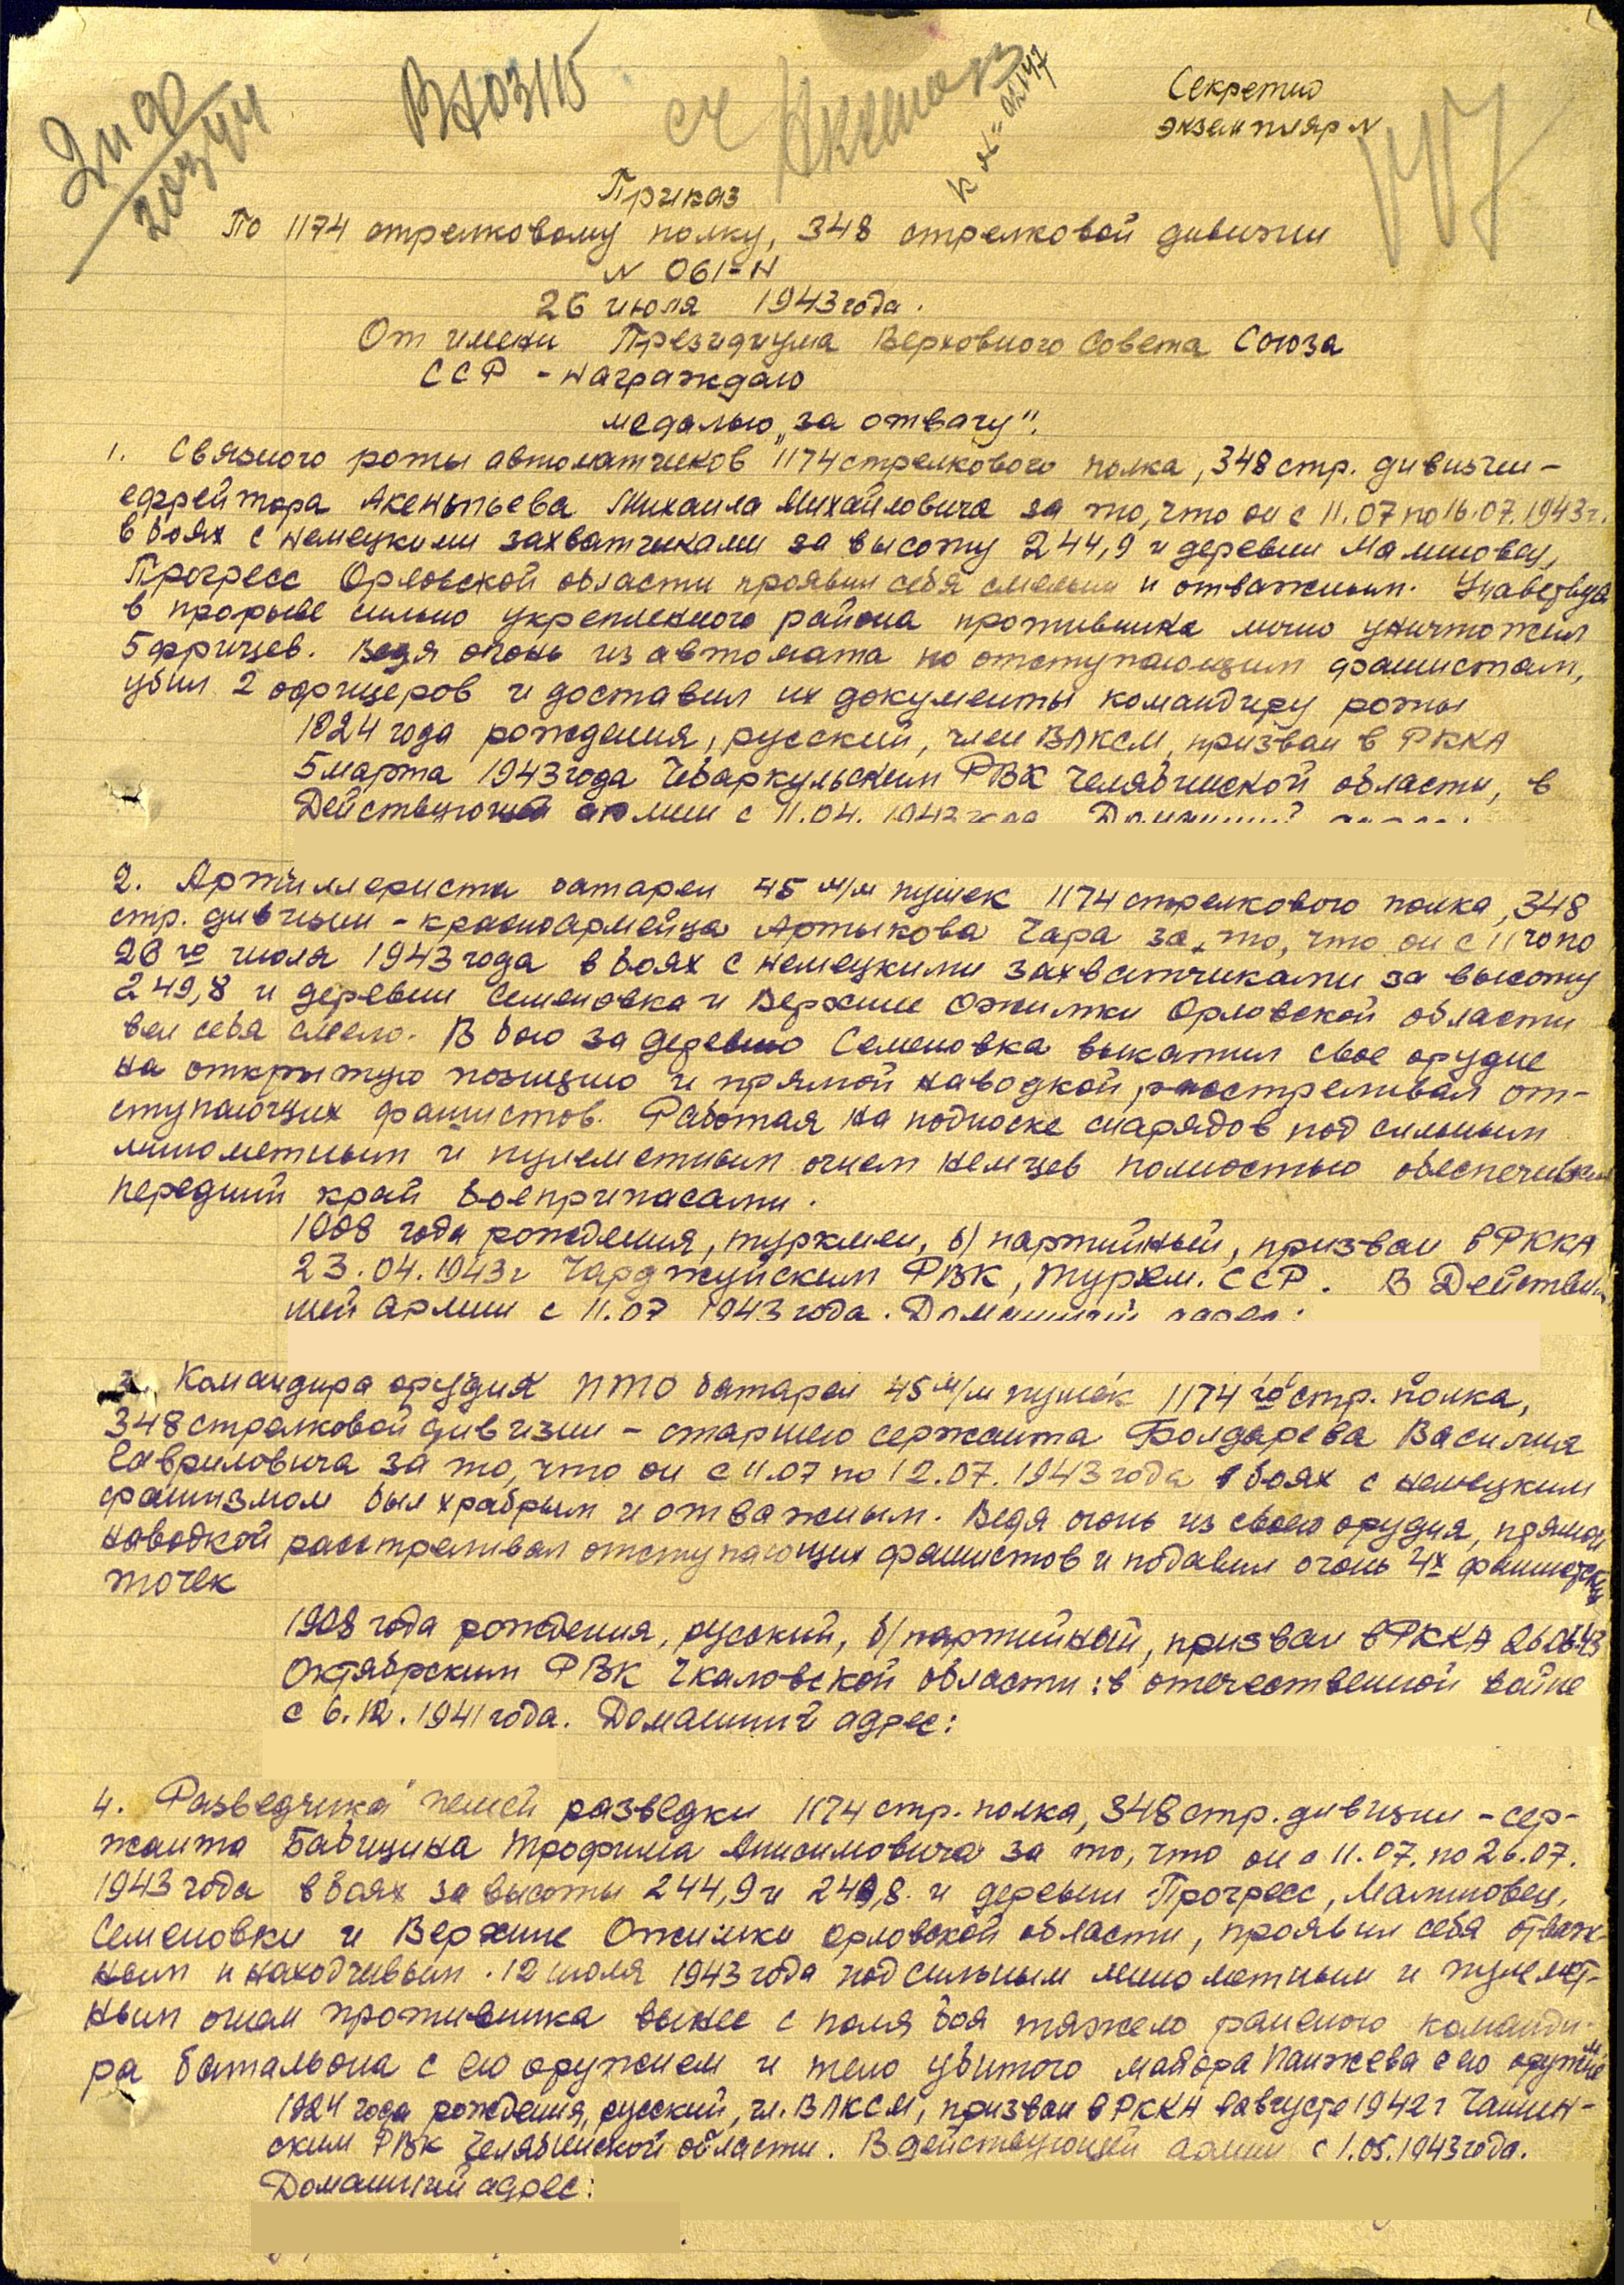 ВХ 03115
Секретно
экземпляр N
Приказ
По 1174 стрелковому полку, 348 стрелковой дивизии
N 061-Н
26 июля 1943 года.
От имени Президиума Верховного Совета Союза
ССР - награждаю
медалью „за отвагу".
1. Связного роты автоматчиков 1174 стрелкового полка, 348 стр. дивизии -
ефрейтора Михаила Михайловича за то, что он с 11.07 по 16.07.1943 г.
в боях с немецкими захватчиками за высоту 244,9 и деревни Малиновец,
Прогресс Орловской области проявил себя смелым и отважным. Участвуя
в прорыве сильно укрепленного района противника лично уничтожил
5 фрицев. Ведя огонь из автомата по отступающим фашистам,
убил 2 офицеров и доставил их документы командиру роты
1924 года рождения, русский, член ВЛКСМ, призван в РККА
5 марта 1943 года Чебаркульским РВК Челябинской области, в
Действующей армии с 11.04. 1943 года Домашний адрес:
2. Артиллериста батареи 45 м/м пушек 1174 стрелкового полка, 348
стр. дивизии - красноармейца Артыкова Чара за то, что он с 11 го по
26 го июля 1943 года в боях с немецкими захватчиками за высоту
249,8 и деревни Семеновка и Верхние Ожимки Орловской области
вел себя смело. В бою за деревню Семеновка выкатил свое орудие
на открытую позицию и прямой наводкой, расстреливал от-
ступающих фашистов. Работая на подноске снарядов под сильным
минометным и пулеметным огнем немцев полностью обеспечивал
передний край боеприпасами.
1908 года рождения, туркмен, б/партийный, призван в РККА
23.04.1943 г Чарджуйским РВК, Туркм. ССР. В Действую-
щей армии с 11.07 1943 года. Домашний адрес:
3. Командира орудия ПТО батареи 45 м/м пушек 1174 го стр. полка,
348 стрелковой дивизии - старшего сержанта Болдарева Василия
Гавриловича за то, что он с 11.07 по 12.07.1943 года в боях с немецким
фашизмом был храбрым и отважным. Ведя огонь из своего орудия, прямой
наводкой расстреливал отступающих фашистов и подавил огонь 4х фашистских
точек
1908 года рождения, русский, б/партийный, призван в РККА
Октябрьским РВК Чкаловской области: в отечественной войне
с 6.12.1941 года. Домашний адрес:
4. Разведчика пешей разведки 1174 стр. полка, 348 стр. дивизии - сер-
жанта Бабицина Трофима Анисимовича за то, что он с 11.07. по 26.07.
1943 года в боях за высоты 244,9 и 249,8 и деревни Прогресс, Малиновец,
Семеновки и Верхние Ожимки Орловской области, проявил себя отваж-
ным и находчивым. 12 июля 1943 года под сильным минометным и пулемет-
ным огнем противника вынес с поля боя тяжело раненого команди-
ра батальона с его оружием и тело убитого майора с его оружием
1924 года рождения, русский, чл. ВЛКСМ, призван в РККА в августе 1942 г Чашин-
ским РВК Челябинской области. В действующей армии с 1.05.1943 года.
Домашний адрес: